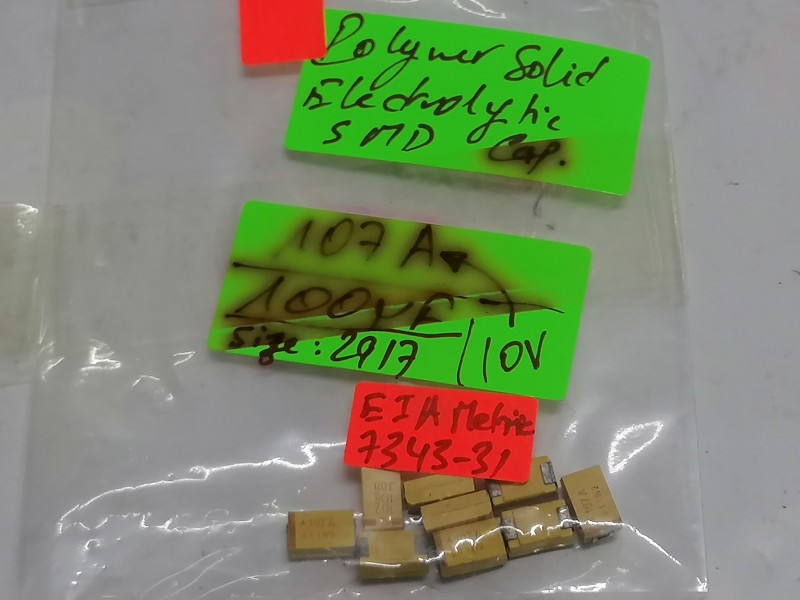 Polymer Solid
Electrolytic
SMD Cap.
107A
100µF
Size: 2917 / 10V
EIA Metric
7343-31
107A